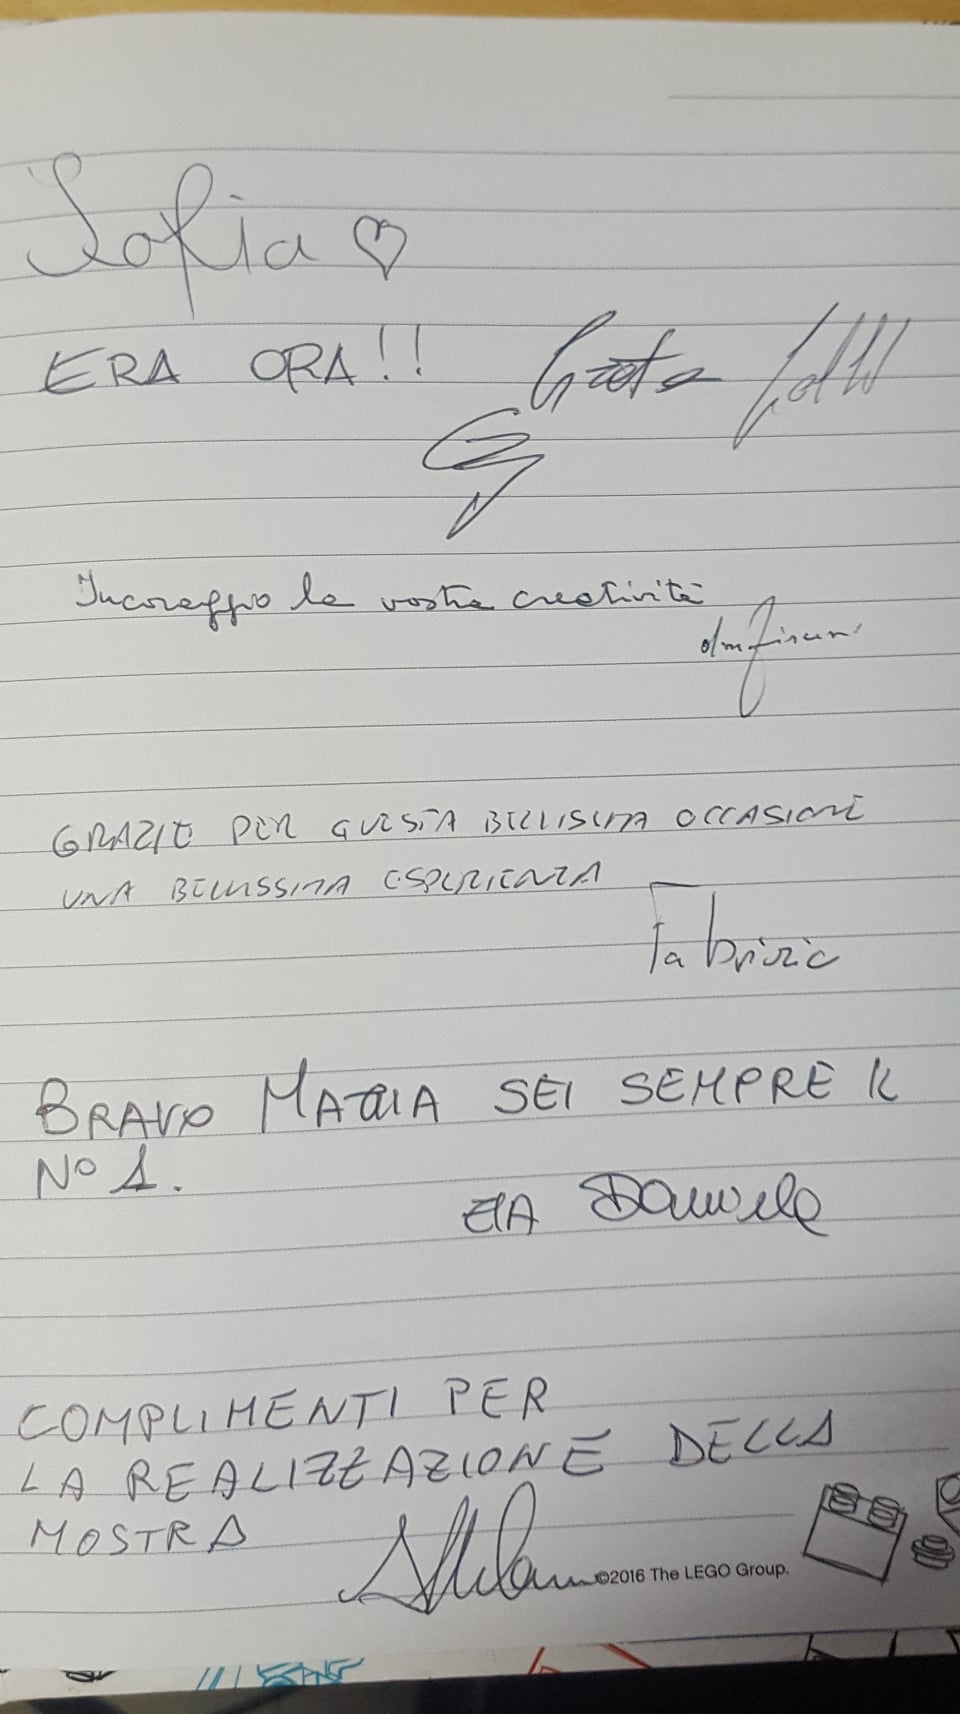 Sofia ♡
ERA ORA!!
Incoraggio la vostra creatività
GRAZIE PER QUESTA BELLISSIMA OCCASIONE
UNA BELLISSIMA ESPERIENZA
Fabrizio
BRAVO MATTIA SEI SEMPRE IL
N° 1.
Daniele
COMPLIMENTI PER
LA REALIZZAZIONE DELLA
MOSTRA
©2016 The LEGO Group.